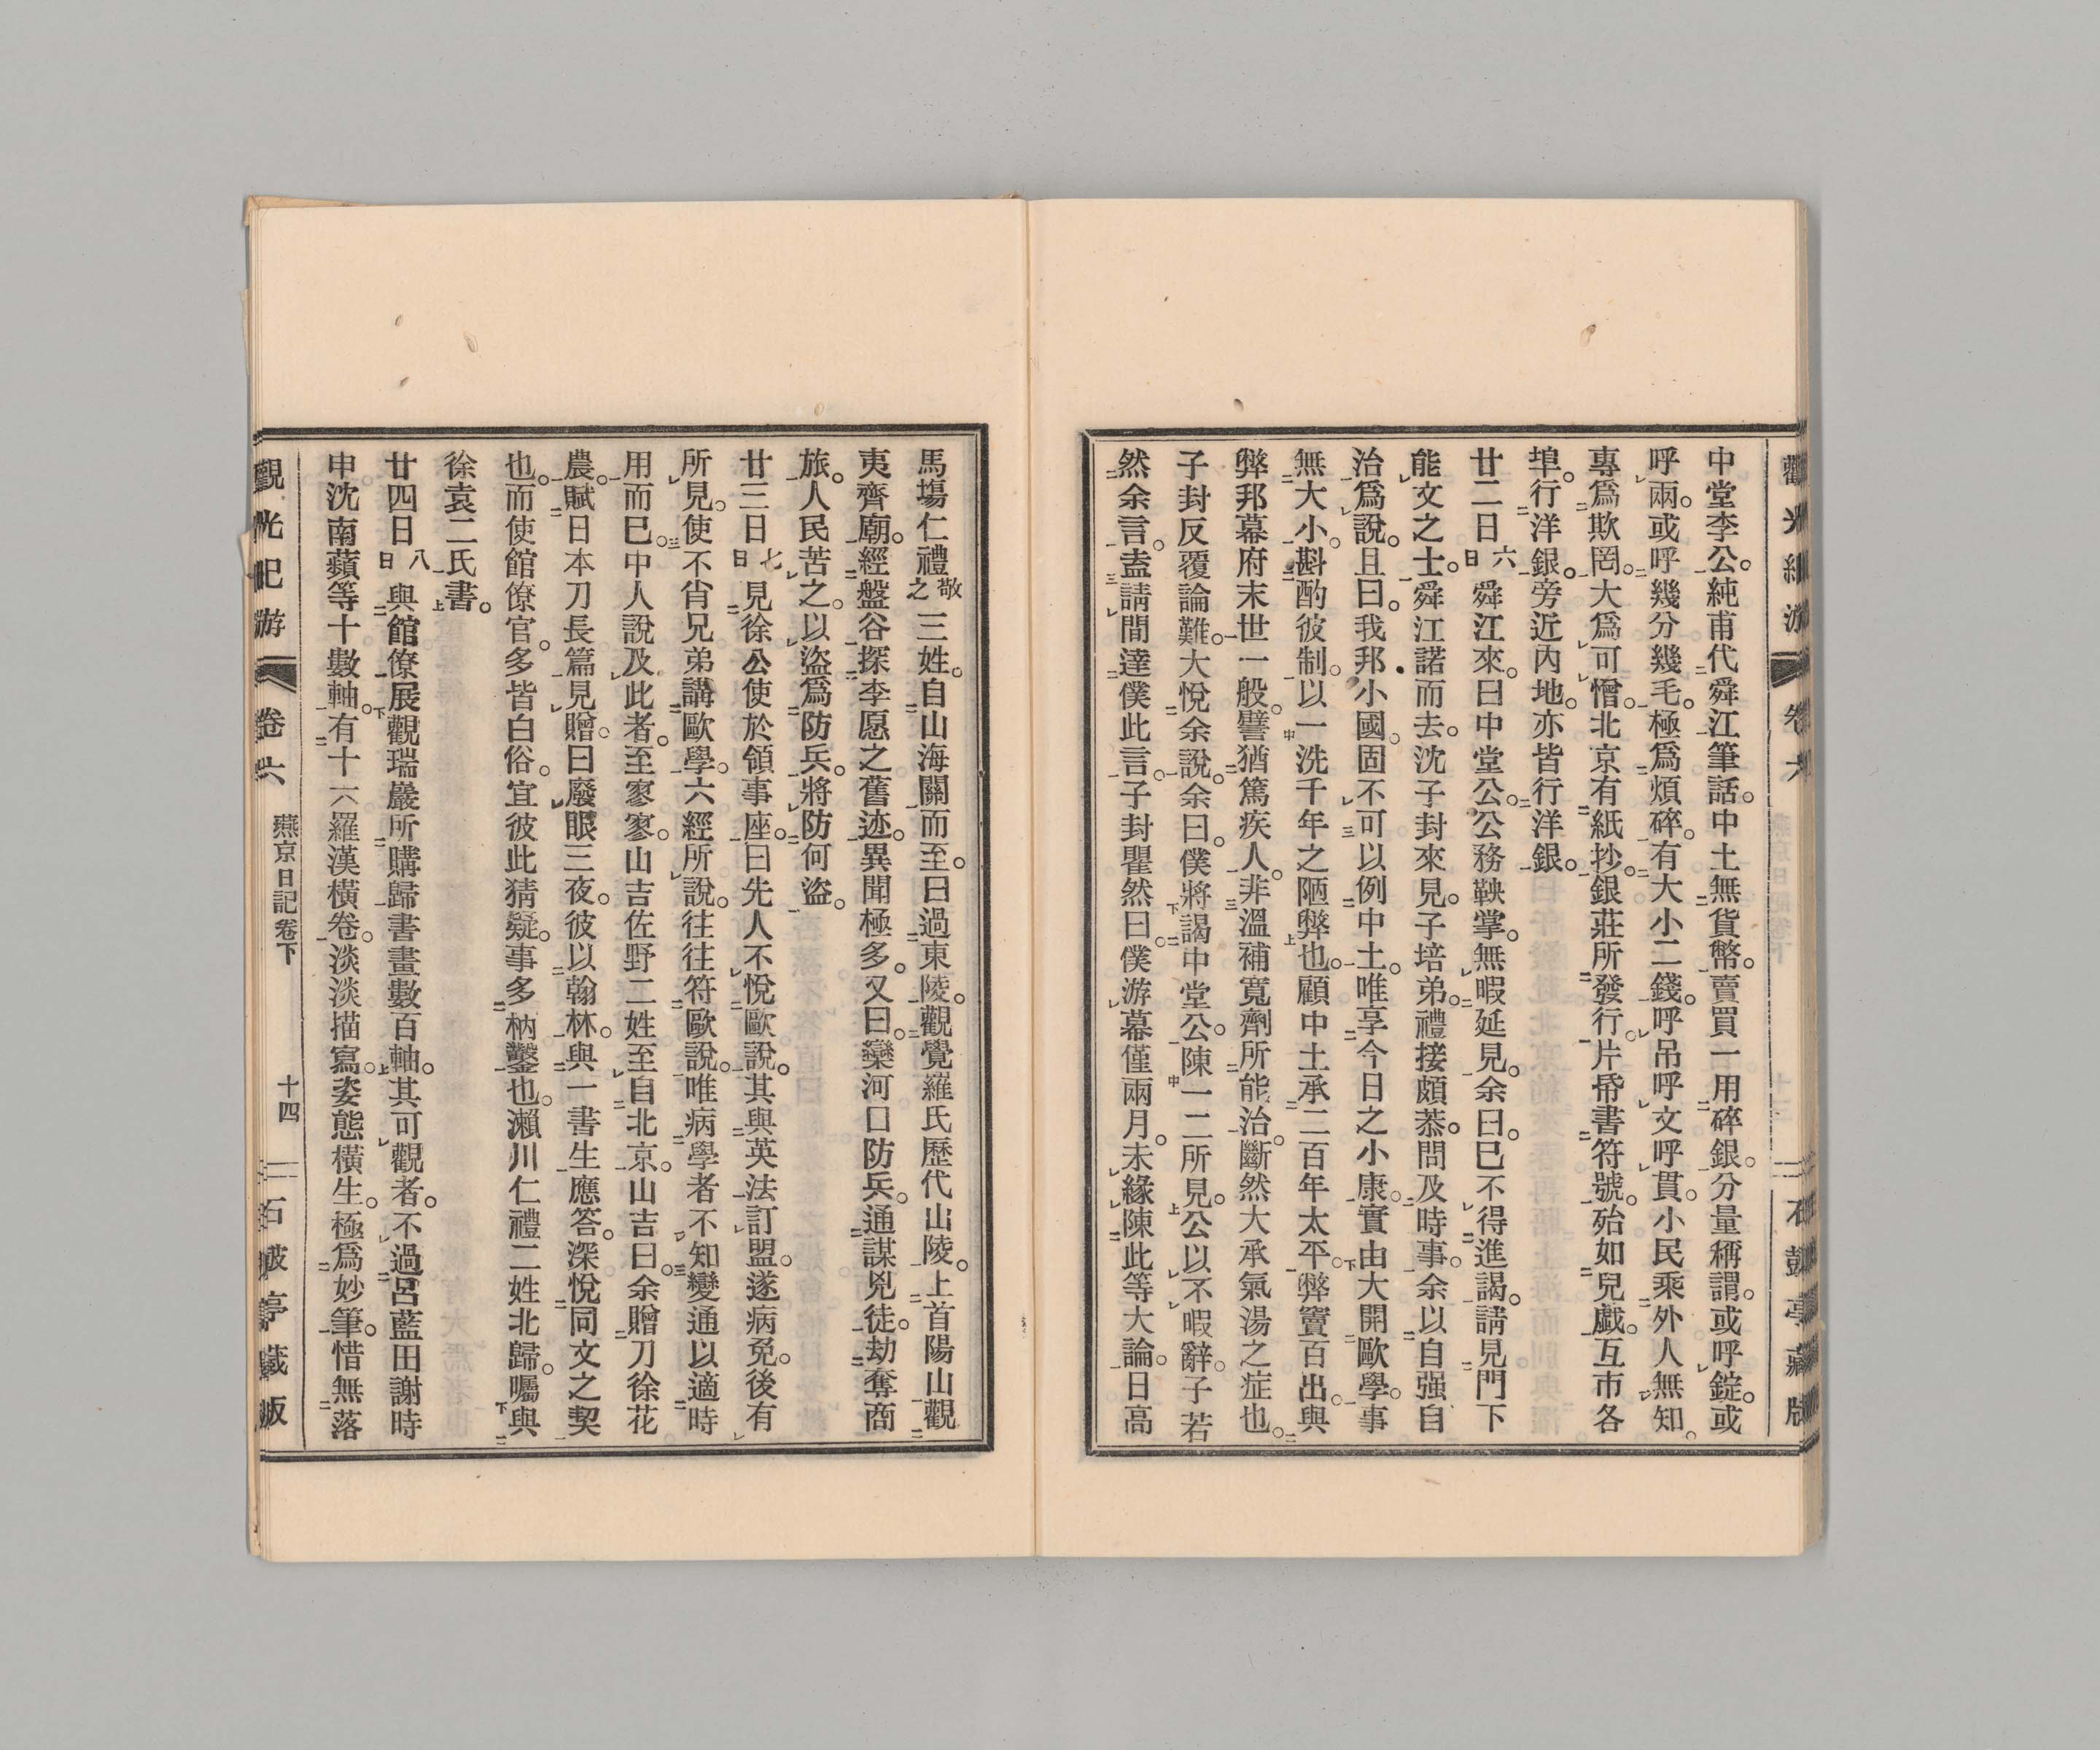 中堂李公。純甫代舜江筆話。中土無貨幣。賣買一用碎銀。分量稱謂。或呼錠。或
呼兩。或呼幾分幾毛。極爲煩碎。有大小二錢。呼吊呼文呼貫。小民乘外人無知。
專爲欺罔。大爲可憎。北京有紙抄。銀莊所發行。片帋書符號。殆如兒戲。互市各
埠。行洋銀。旁近內地。亦皆行洋銀。
廿二日六日舜江來。曰中堂公。公務鞅掌。無暇延見。余曰。已不得進謁。請見門下
能文之士。舜江諾而去。沈子封來見。子培弟。禮接頗恭。問及時事。余以自强自
治爲說。且曰。我邦小國。固不可以例中土。唯享今日之小康。實由大開歐學。事
無大小。斟酌彼制。以一洗千年之陋弊也。顧中土承二百年太平。弊竇百出。與
弊邦幕府末世一般。譬猶篤疾人。非溫補寬劑所能治。斷然大承氣湯之症也。
子封反覆論難。大悅余說。余曰。僕將謁中堂公。陳一二所見。公以不暇辭。子若
然余言。盍請間達僕此言。子封瞿然曰。僕游幕僅兩月。未緣陳此等大論。日高
馬塲仁禮敬之三姓。自山海關而至。曰過東陵。觀覺羅氏歷代山陵。上首陽山觀
夷齊廟。經盤谷探李愿之舊迹。異聞極多。又曰。欒河口防兵。通謀兇徒。劫奪商
旅。人民苦之。以盜爲防兵。將防何盜。
廿三日七日見徐公使於領事座。曰先人不悅歐說。其與英法訂盟。遂病免。後有
所見。使不肖兄弟講歐學。六經所說。往往符歐說。唯病學者不知變通以適時
用而已。中人說及此者。至寥寥。山吉佐野二姓至自北京。山吉曰。余贈刀徐花
農。賦日本刀長篇見贈。曰廢眼三夜。彼以翰林。與一書生應答。深悅同文之契
也。而使館僚官。多皆白俗。宜彼此猜疑。事多枘鑿也。瀨川仁禮二姓北歸。囑與
徐袁二氏書。
廿四日八日與館僚展觀瑞巖所購歸書畫數百軸。其可觀者。不過呂藍田謝時
申沈南蘋等十數軸。有十六羅漢橫卷。淡淡描寫。姿態橫生。極爲妙筆。惜無落
觀光紀游 卷六 燕京日記卷下 十四